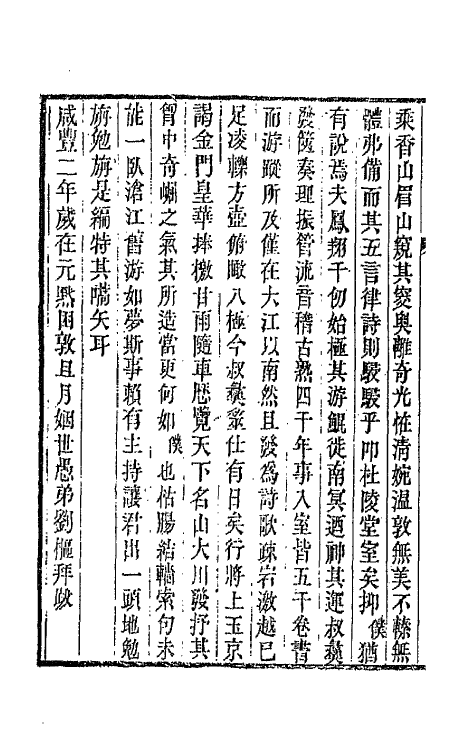 乘香山眉山窺其窔奥離奇光怪清婉溫敦無美不臻無
體弗備而其五言律詩則駸駸乎叩杜陵堂室矣抑僕猶
有說焉夫鳳翔千仞始極其游鯤徙南冥迺神其運叔蕤
發篋奏理振管流音稽古熟四千年事入室皆五千卷書
而游蹤所及僅在大江以南然且發爲詩歌疎岩激越已
足凌轢方壺俯瞰八極今叔蕤筮仕有日矣行將上玉京
謁金門皇華捧檄甘雨隨車歷覽天下名山大川發抒其
胷中奇崛之氣其所造當更何如僕也枯腸結轖索句未
能一臥滄江舊游如夢斯事賴有主持讓君出一頭地勉
旃勉旃是編特其嚆矢耳
咸豐二年歲在元黓困敦且月姻世愚弟劉樞拜啟